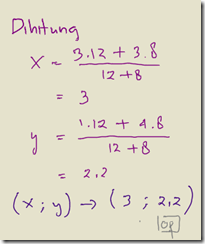 Dihitung
x = 3.12 + 3.8
12 + 8
= 3
y = 1.12 + 4.8
12 + 8
= 2,2
(x ; y) → (3 ; 2,2)